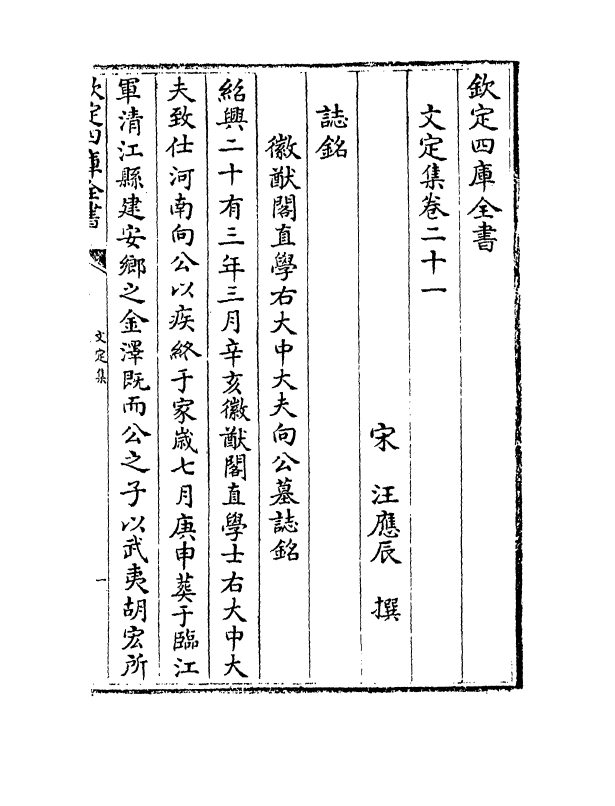 欽定四庫全書
文定集卷二十一
宋 汪應辰 撰
誌銘
徽猷閣直學右大中大夫向公墓誌銘
紹興二十有三年三月辛亥徽猷閣直學士右大中大
夫致仕河南向公以疾終于家歲七月庚申葬于臨江
軍清江縣建安鄉之金澤既而公之子以武夷胡宏所
欽定四庫全書
文定集
一